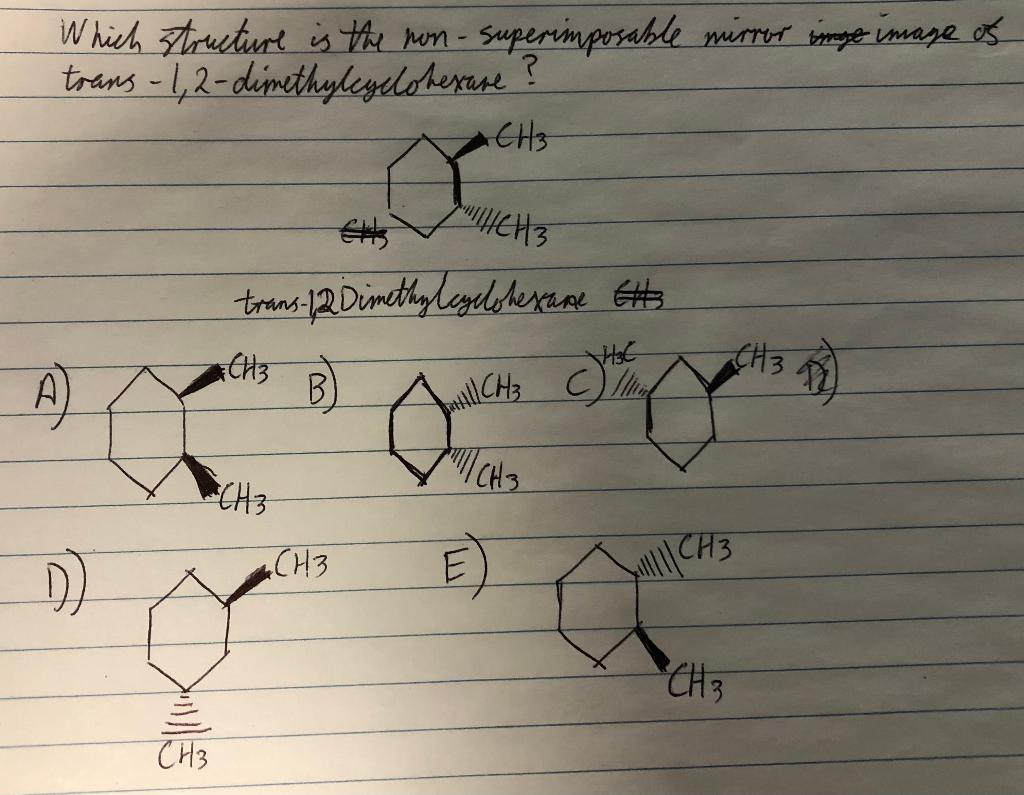 Which structure is the non-superimposable mirror imge image of
trans-1,2-dimethylcyclohexane?
CH3
CH3
CH3
trans-1,2 Dimethylcyclohexane CH3
A) CH3 B) CH3 C) H3C CH3 D)
CH3 CH3
D) CH3 E) CH3
CH3
CH3